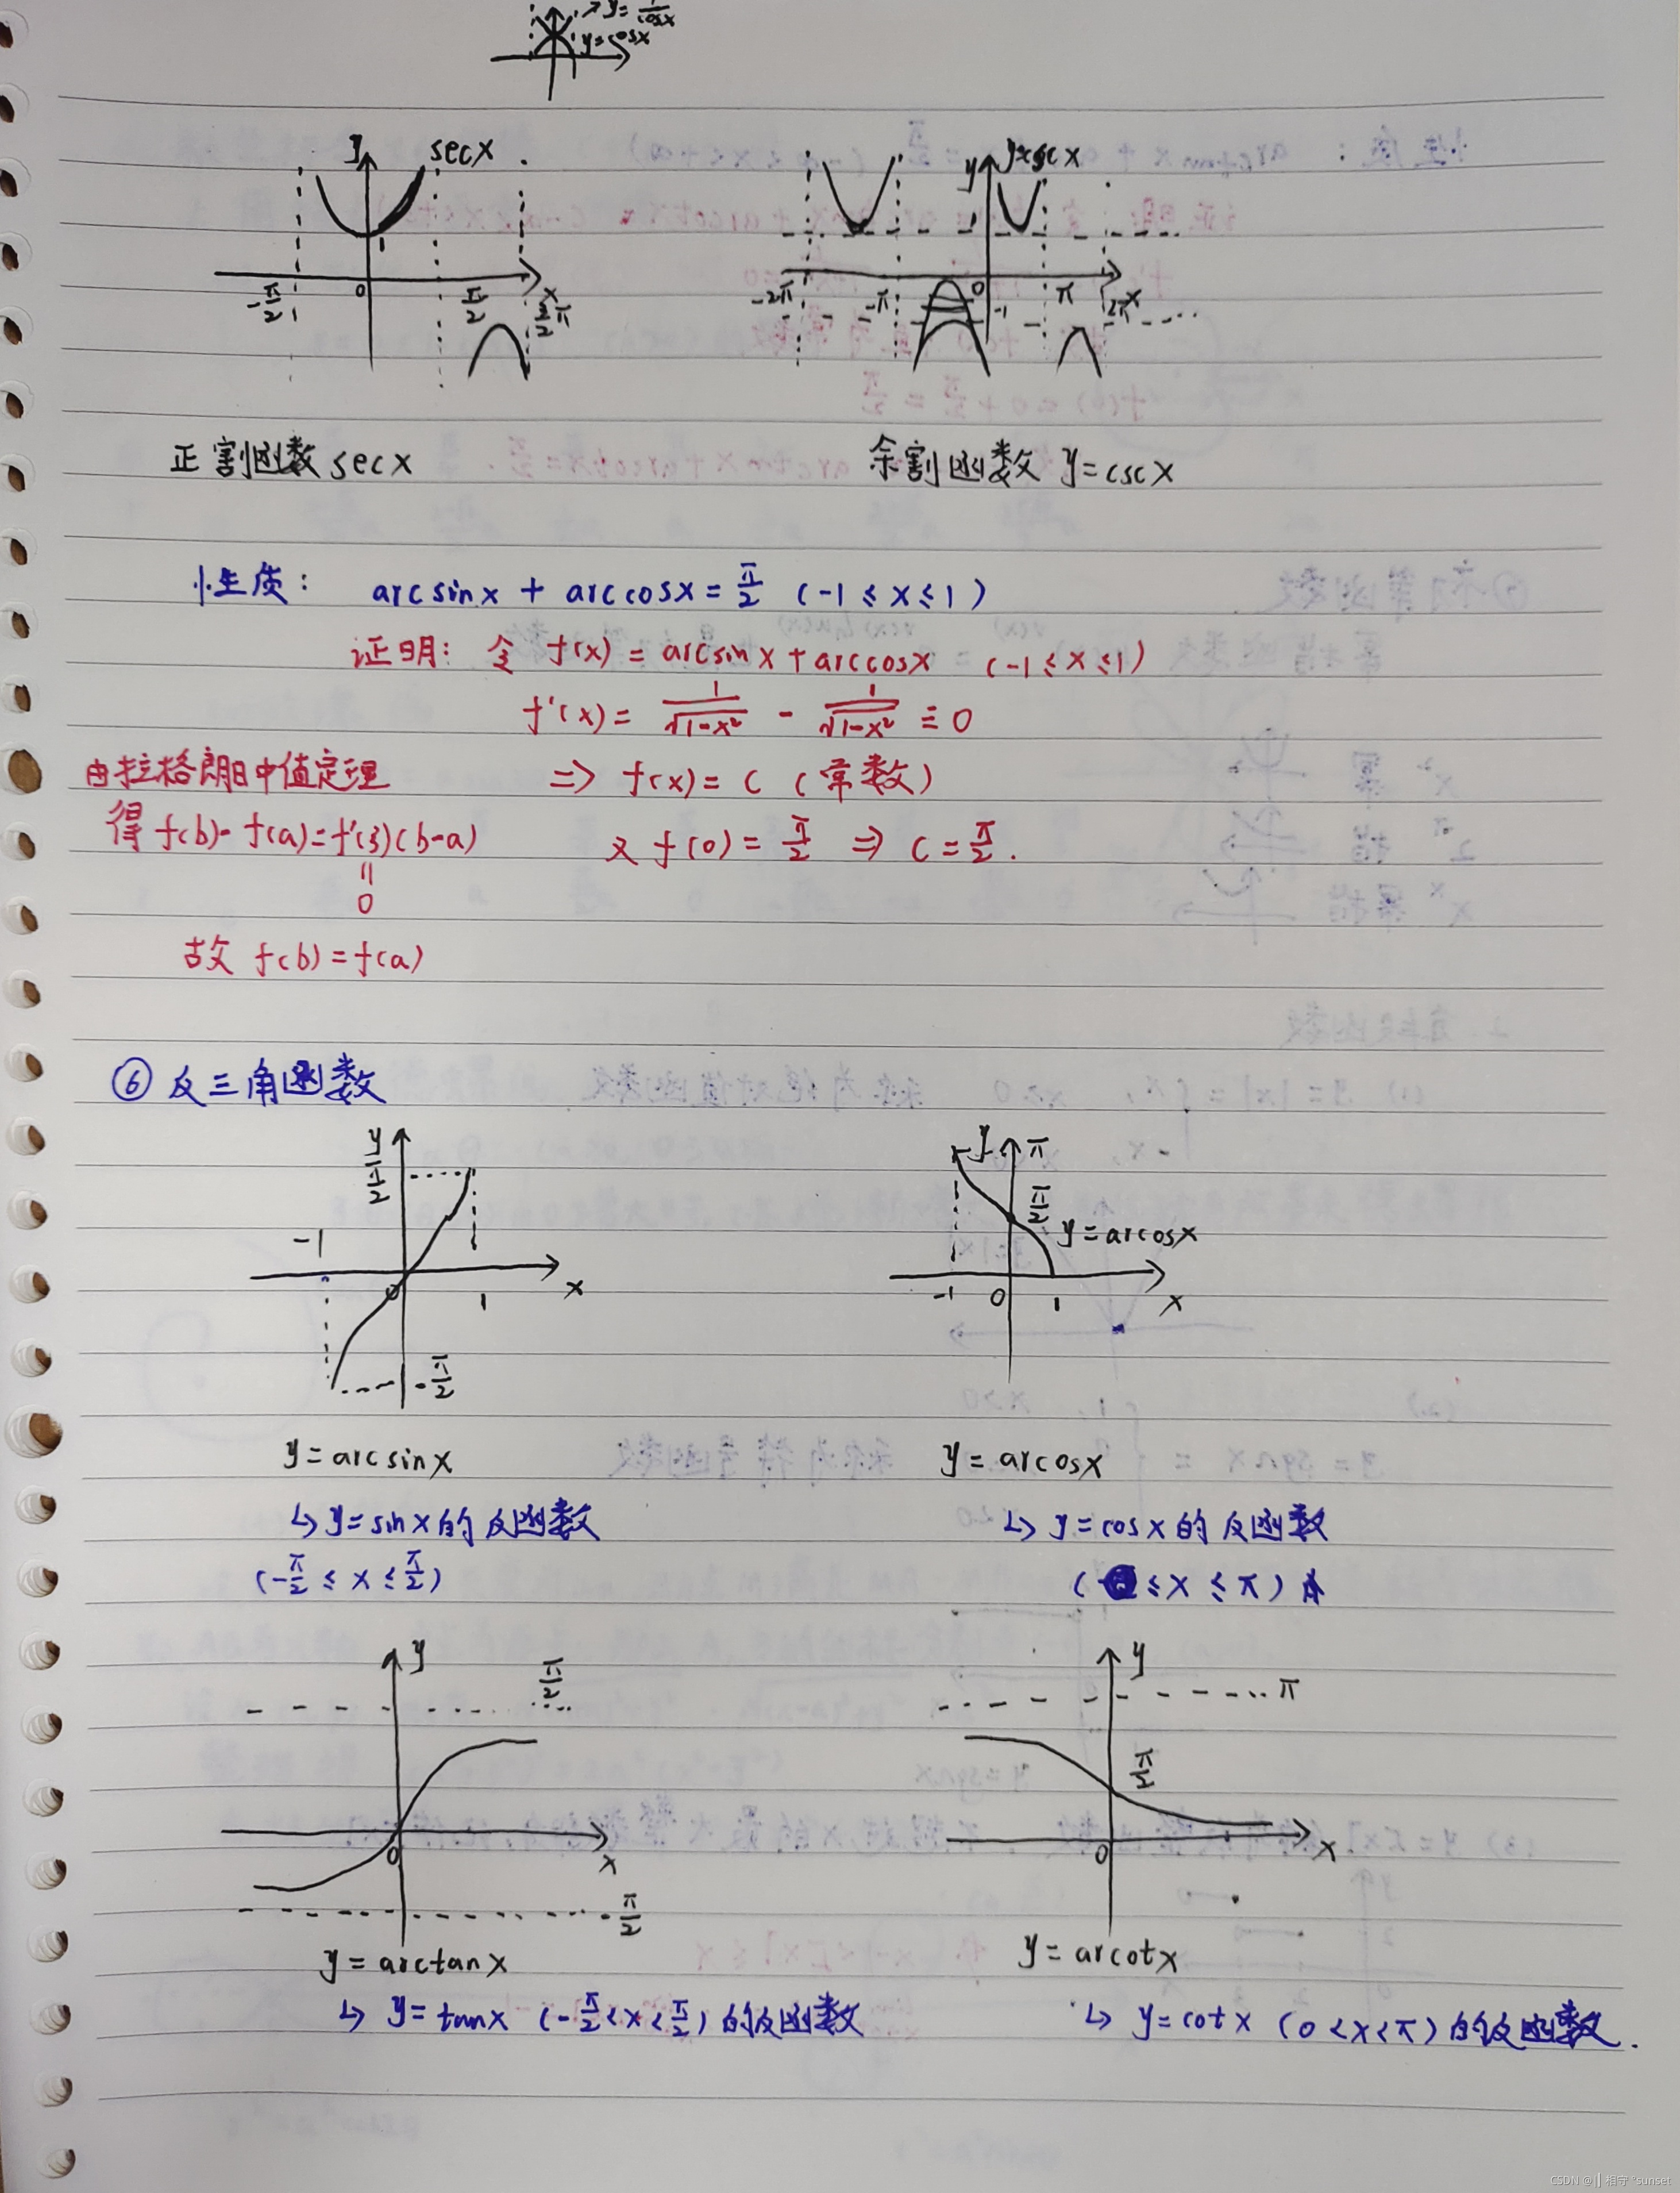 y=1/cosx
y=cosx
y secx
1
-π/2 0 π/2 x 3/2π
y y=cscx
1
-2π -π 0 π 2π x
-1
正割函数secx 余割函数 y=cscx
小性质: arcsinx + arccosx = π/2 (-1≤x≤1)
证明: 令 f(x) = arcsinx + arccosx (-1≤x≤1)
f'(x) = 1/√1-x² - 1/√1-x² ≡ 0
由拉格朗日中值定理 => f(x) = C (常数)
得 f(b)-f(a)=f'(ξ)(b-a) 又 f(0) = π/2 => C = π/2.
=
0
故 f(b)=f(a)
⑥ 反三角函数
y π/2 -1 0 1 x -π/2
y π π/2 y=arcosx -1 0 1 x
y=arcsinx y=arcosx
↳ y=sinx的反函数 ↳ y=cosx的反函数
(-π/2 ≤ x ≤ π/2) ( ≤ x ≤ π)
y π/2 0 x -π/2
y π π/2 0 x
y=arctanx y=arcotx
↳ y=tanx (-π/2<x<π/2) 的反函数 ↳ y=cotx (0<x<π) 的反函数.
CSDN @|| 相守 °sunset